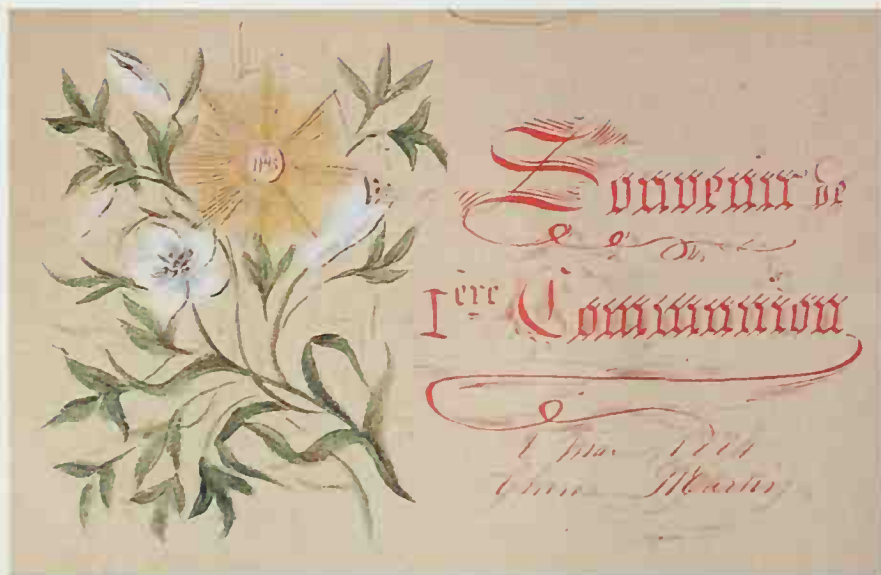 IHS
Souvenir de
1ère Communion
Mai
Martin